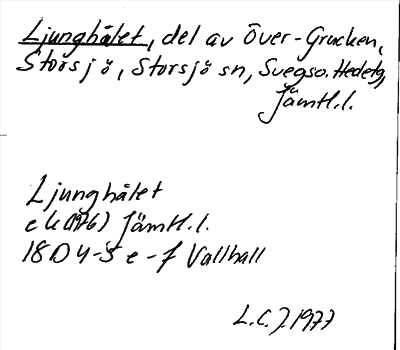 Ljunghålet, del av Över-Grucken,
Storsjö, Storsjö sn, Svegso. Hedetg,
Jämtl.l.
Ljunghålet
ek (1976) Jämtl.l.
18D 4-5 e-f Vallhall
L.C.J. 1977